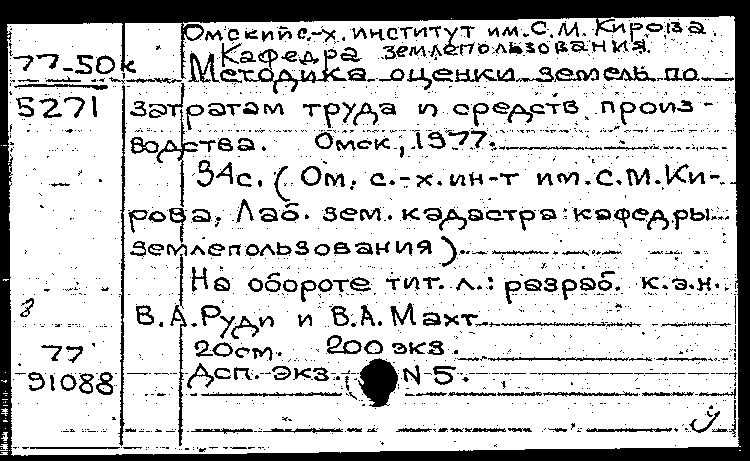 Омский с.-х. институт им. С.М. Кирова.
Кафедра землепользования.
77-50к Методика оценки земель по
5271 затратам труда и средств произ-
водства. Омск, 1977.
34с. (Ом. с.-х. ин-т им. С.М. Ки-
рова, Лаб. зем. кадастра кафедры
землепользования).
На обороте тит. л.: разраб. к.э.н.
В.А. Руди и В.А. Махт
77 20см. 200 экз.
91088 Дсп. экз. N 5.